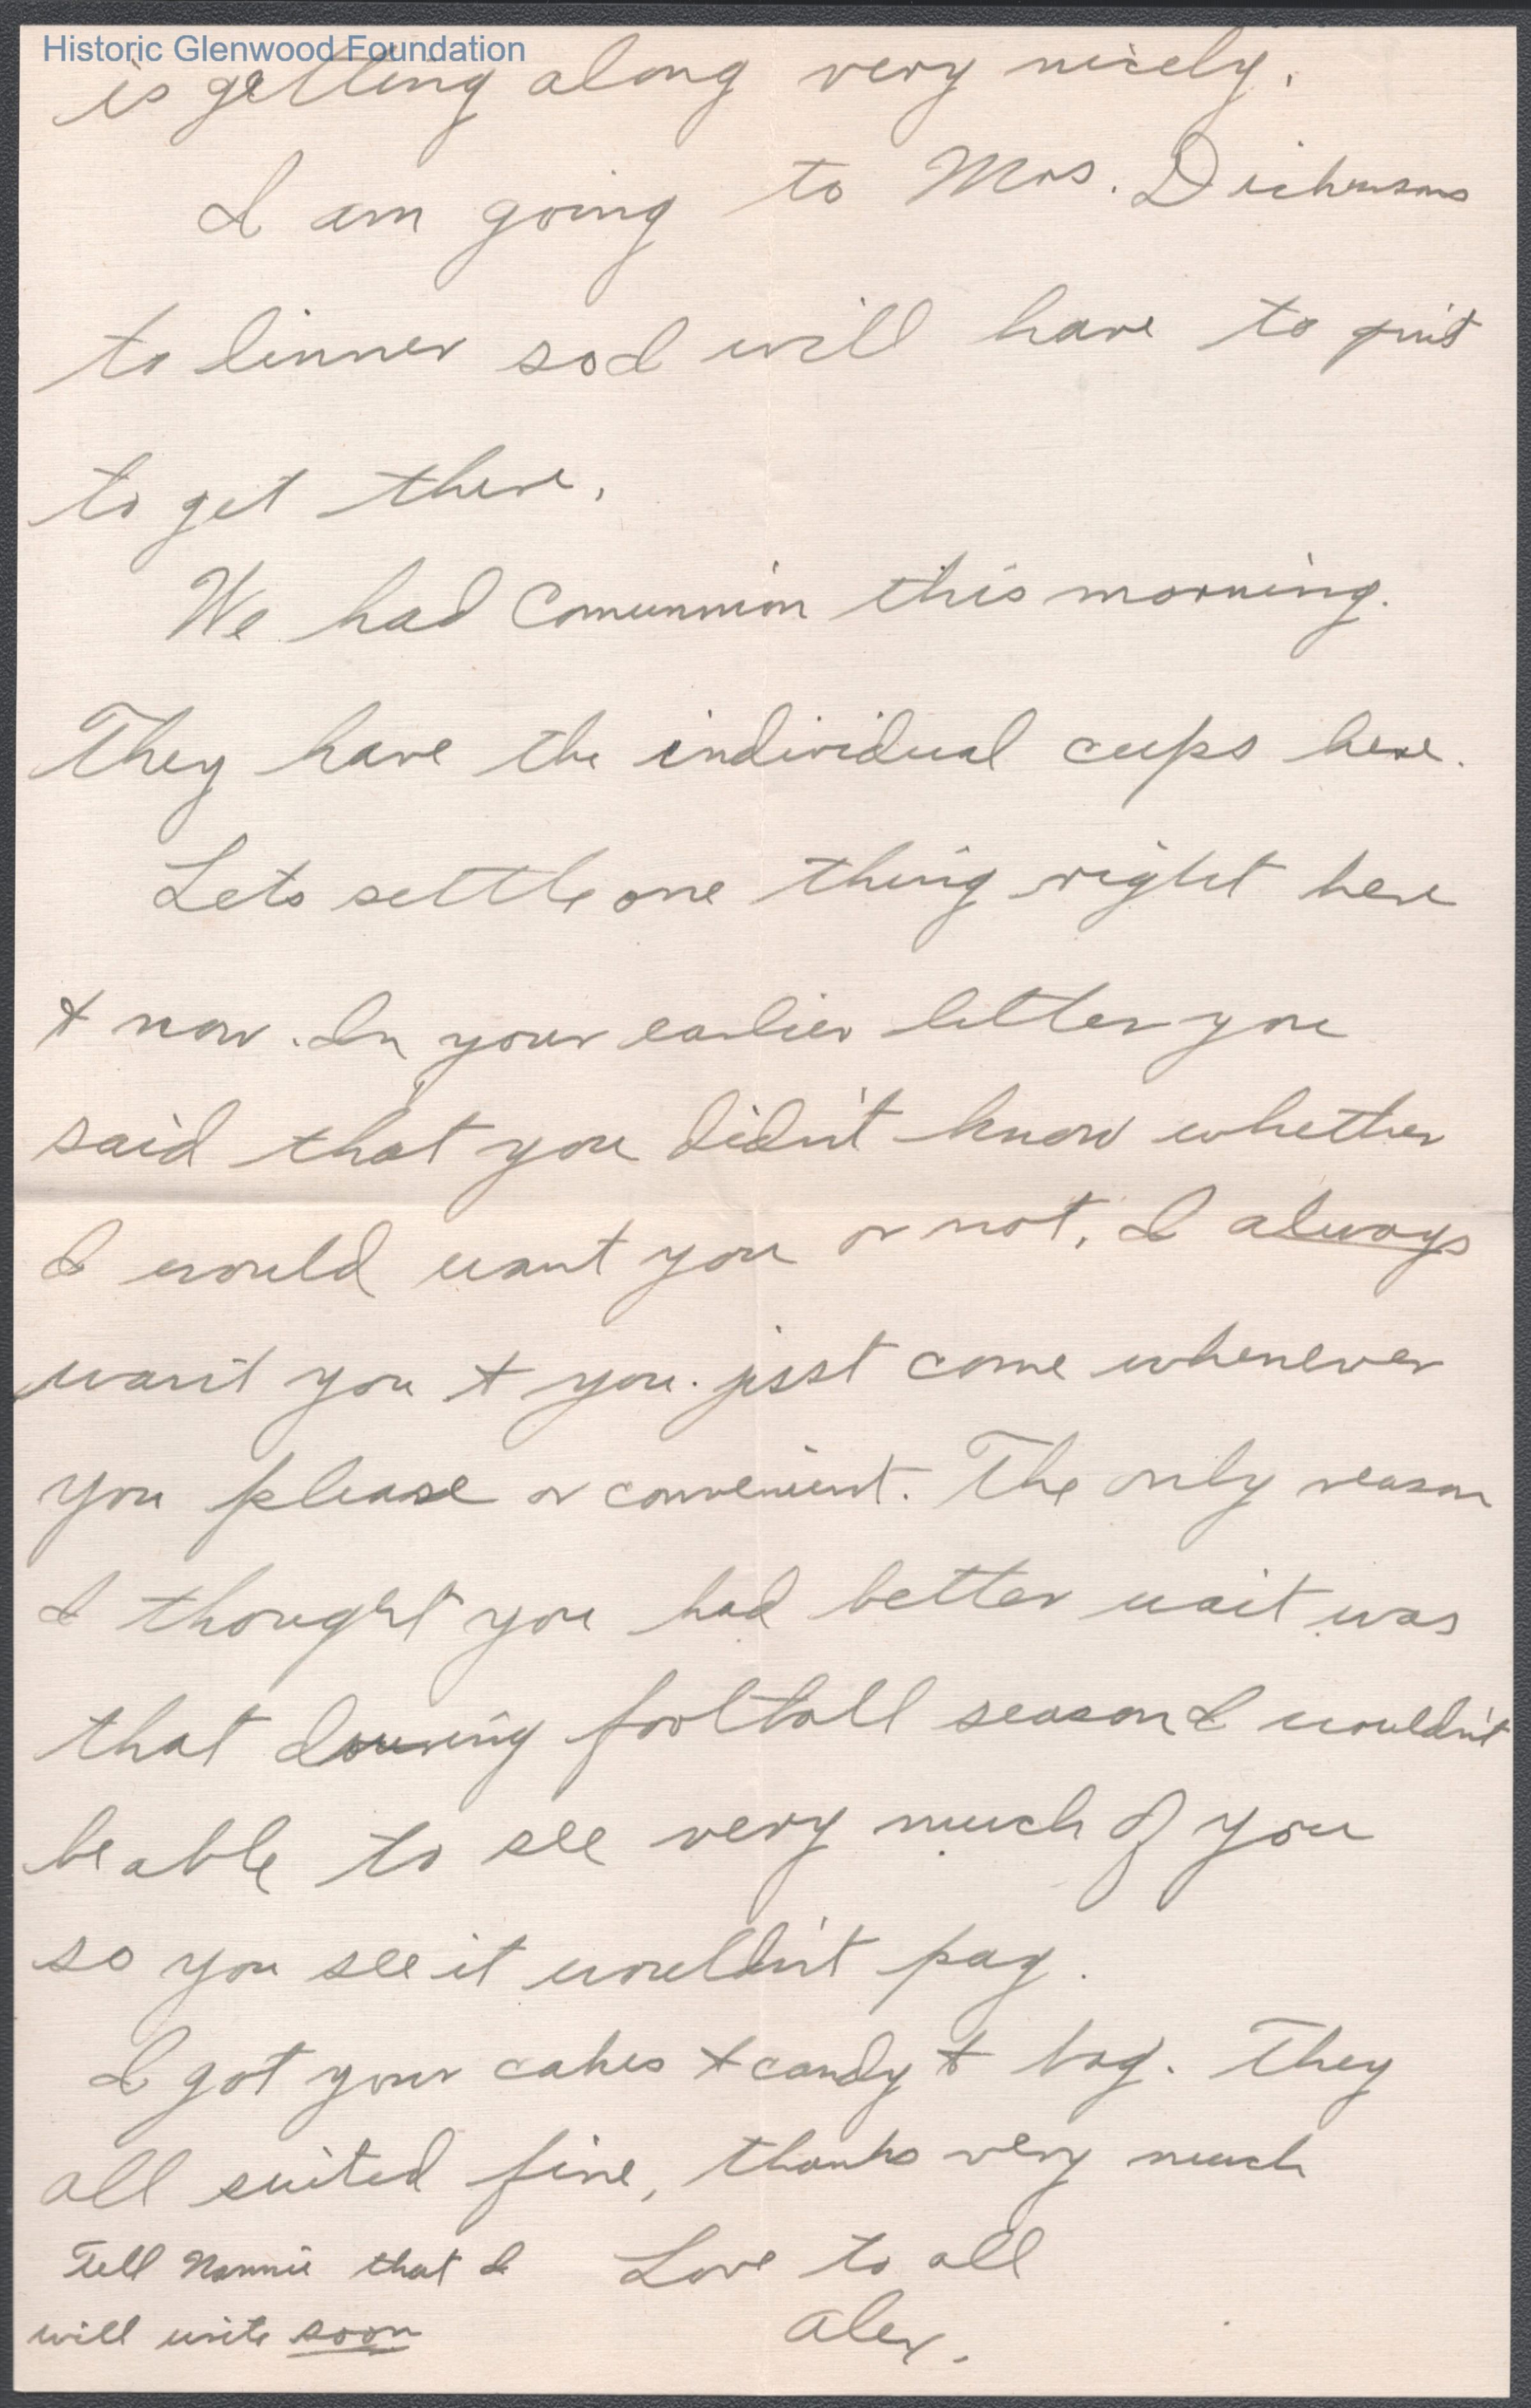 Historic Glenwood Foundation
is getting along very nicely.
I am going to Mrs. Dickensons
to dinner so I will have to quit
to get there.
We had Comunnion this morning.
They have the individual cups here.
Lets settle one thing right here
& now. In your earlier letter you
said that you didn't know whether
I would want you or not. I always
want you & you just come whenever
you please or convenient. The only reason
I thought you had better wait was
that during football season I wouldn't
be able to see very much of you
so you see it wouldn't pay.
I got your cakes & candy & bag. They
all suited fine, thanks very much
Love to all
Alex.
Tell Nannie that I
will write soon